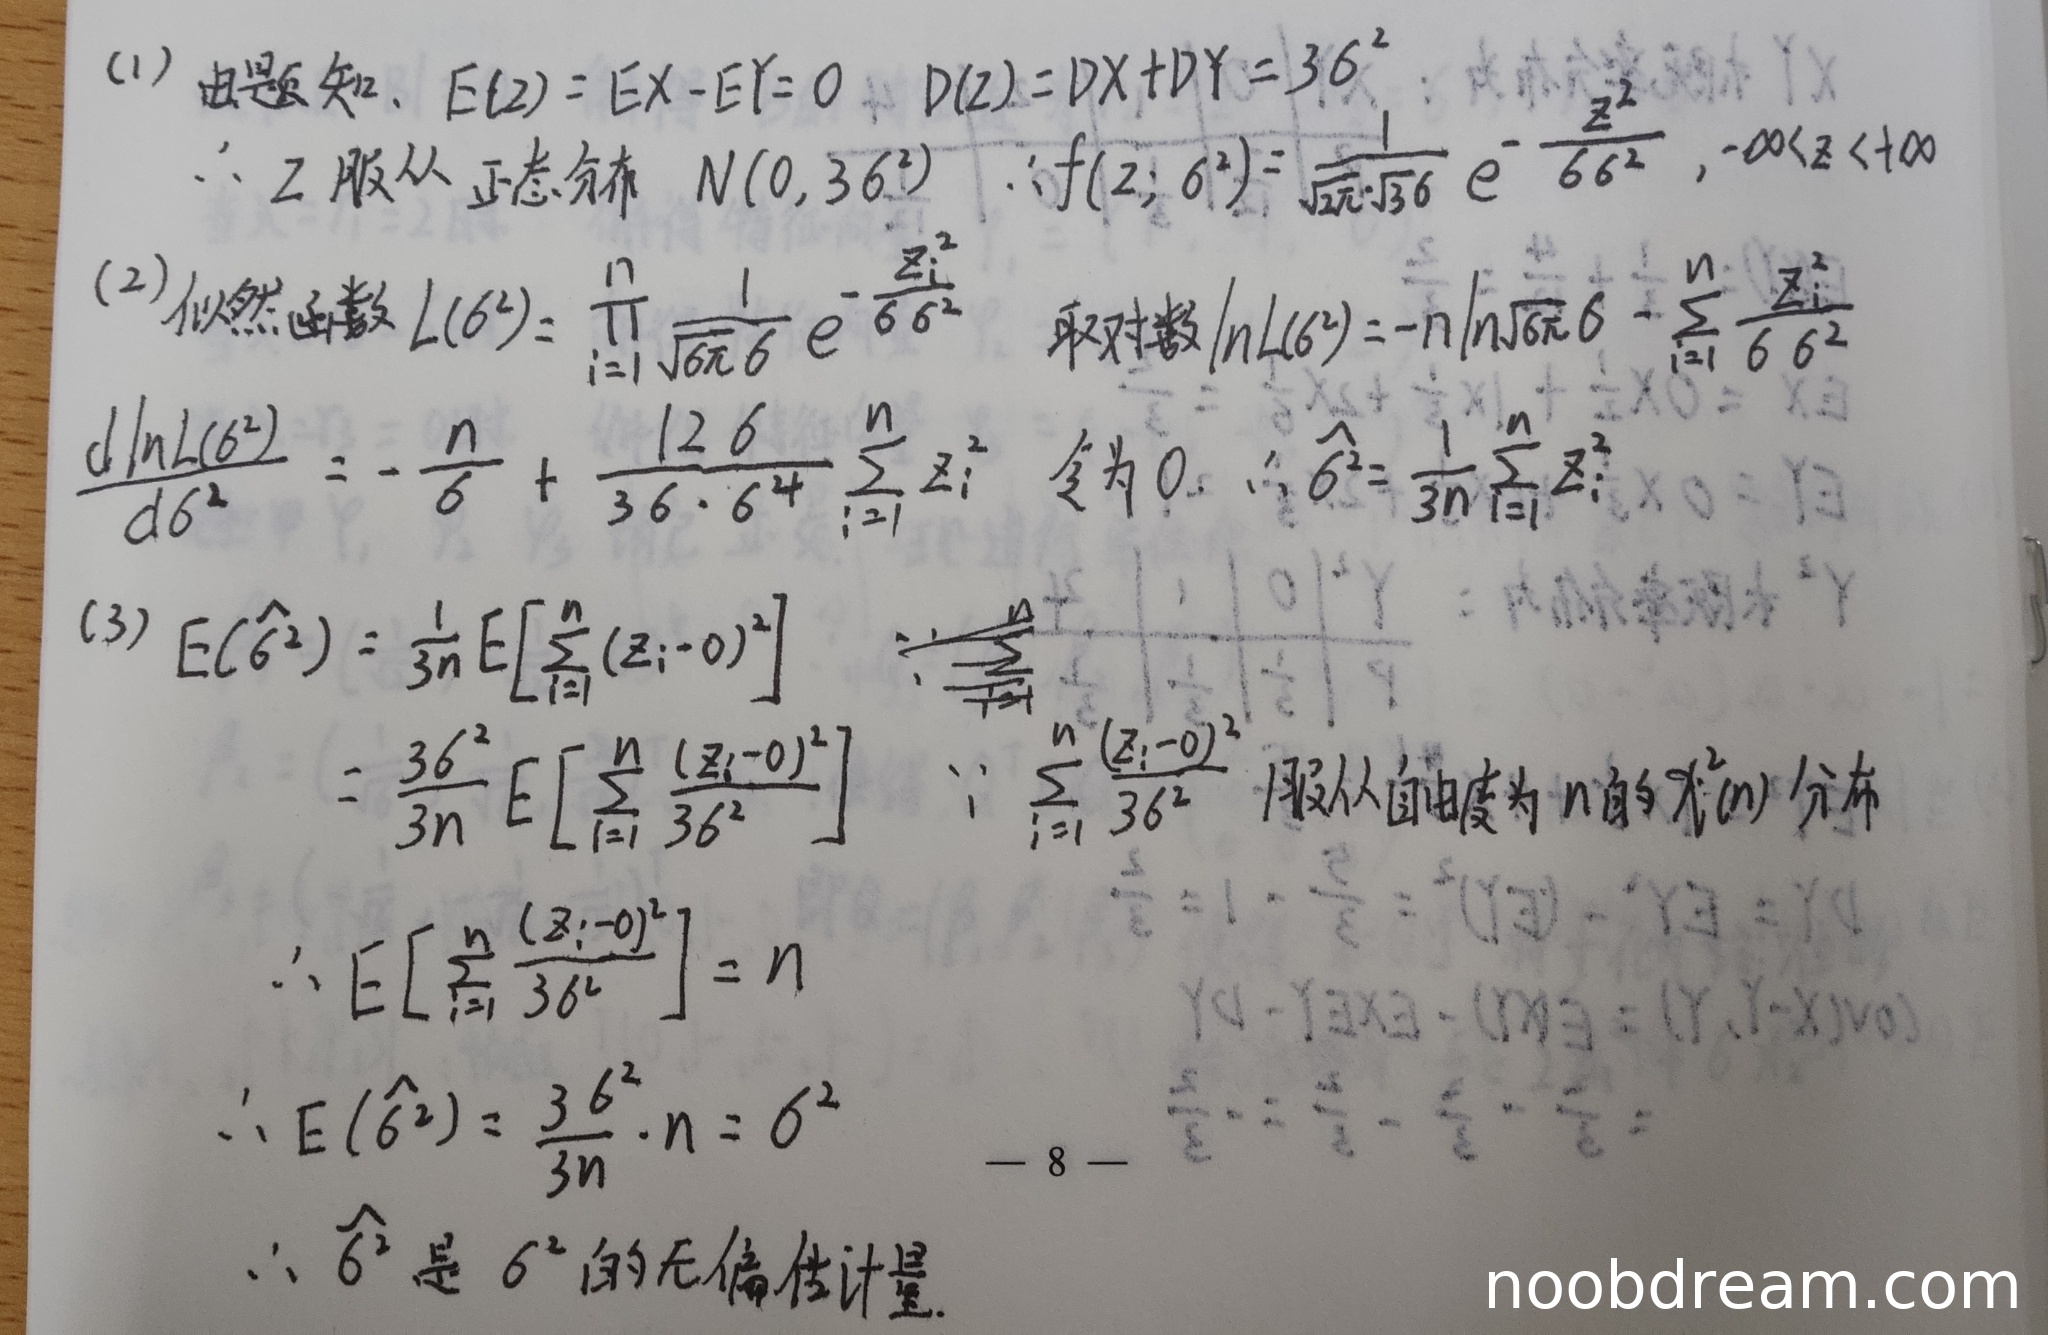 (1) 由题知. E(Z) = EX - EY = 0 D(Z) = DX + DY = 3σ²
∴ Z 服从正态分布 N(0, 3σ²) ∴ f(z; σ²) = \frac{1}{\sqrt{2π}·\sqrt{3}σ} e^{-\frac{z²}{6σ²}}, -∞ < z < +∞
(2) 似然函数 L(σ²) = \prod_{i=1}^{n} \frac{1}{\sqrt{6π}σ} e^{-\frac{z_i²}{6σ²}} 取对数 lnL(σ²) = -n ln\sqrt{6π}σ - \sum_{i=1}^{n} \frac{z_i²}{6σ²}
\frac{d lnL(σ²)}{dσ²} = -\frac{n}{σ} + \frac{12σ}{36·σ⁴} \sum_{i=1}^{n} z_i² 令为0. ∴ \hat{σ²} = \frac{1}{3n} \sum_{i=1}^{n} z_i²
(3) E(\hat{σ²}) = \frac{1}{3n} E[\sum_{i=1}^{n} (z_i - 0)²]
= \frac{3σ²}{3n} E[\sum_{i=1}^{n} \frac{(z_i - 0)²}{3σ²}] ∵ \sum_{i=1}^{n} \frac{(z_i - 0)²}{3σ²} 服从自由度为n的χ²(n)分布
∴ E[\sum_{i=1}^{n} \frac{(z_i - 0)²}{3σ²}] = n
∴ E(\hat{σ²}) = \frac{3σ²}{3n}·n = σ²
— 8 —
∴ \hat{σ²} 是 σ² 的无偏估计量.
noobdream.com